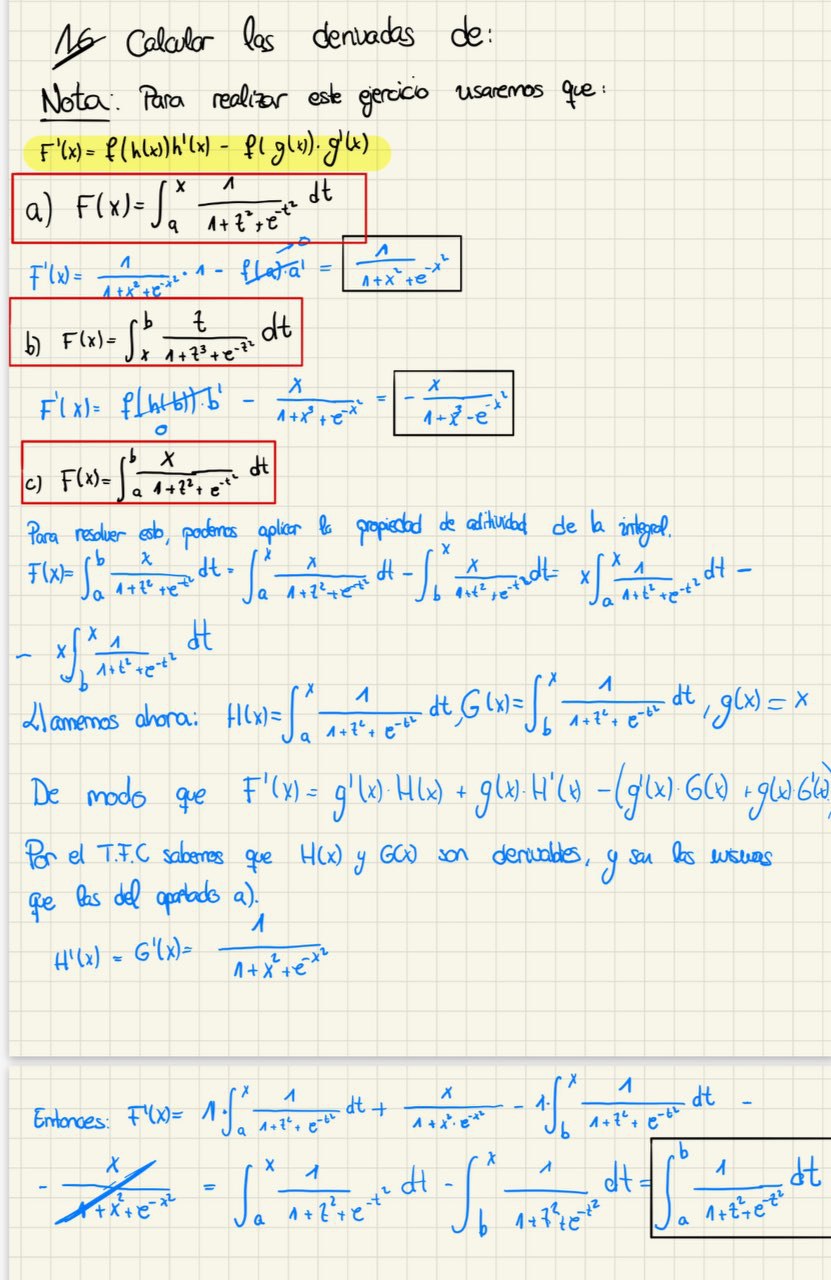 16 Calcular las derivadas de:
Nota: Para realizar este ejercicio usaremos que:
F'(x) = f(h(x))h'(x) - f(g(x))·g'(x)
a) F(x) = ∫_a^x 1/(1+t²+e^{-t²}) dt
F'(x) = 1/(1+x²+e^{-x²}) · 1 - f(a)·a' → 0 = 1/(1+x²+e^{-x²})
b) F(x) = ∫_x^b t/(1+t³+e^{-t²}) dt
F'(x) = f(h(b))·b' 0 - x/(1+x³+e^{-x²}) = - x/(1+x³-e^{-x²})
c) F(x) = ∫_a^b x/(1+t²+e^{-t²}) dt
Para resolver esto, podemos aplicar la propiedad de aditividad de la integral.
F(x) = ∫_a^b x/(1+t²+e^{-t²}) dt = ∫_a^x x/(1+t²+e^{-t²}) dt - ∫_b^x x/(1+t²+e^{-t²}) dt = x∫_a^x 1/(1+t²+e^{-t²}) dt -
- x∫_b^x 1/(1+t²+e^{-t²}) dt
Llamemos ahora: H(x) = ∫_a^x 1/(1+t²+e^{-t²}) dt, G(x) = ∫_b^x 1/(1+t²+e^{-t²}) dt, g(x) = x
De modo que F'(x) = g'(x)·H(x) + g(x)·H'(x) - (g'(x)·G(x) + g(x)·G'(x)
Por el T.F.C sabemos que H(x) y G(x) son derivables, y son las mismas
que las del apartado a).
H'(x) = G'(x) = 1/(1+x²+e^{-x²})
Entonces: F'(x) = 1·∫_a^x 1/(1+t²+e^{-t²}) dt + x/(1+x²·e^{-x²}) - 1·∫_b^x 1/(1+t²+e^{-t²}) dt -
- x/(1+x²+e^{-x²}) = ∫_a^x 1/(1+t²+e^{-t²}) dt - ∫_b^x 1/(1+t²+e^{-t²}) dt = ∫_a^b 1/(1+t²+e^{-t²}) dt